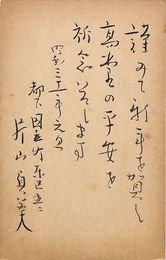 謹みて新年を賀し
高堂の平安を
祈念致します
昭和三十二年元旦
都下国立町東区五ノ二
片山貞美